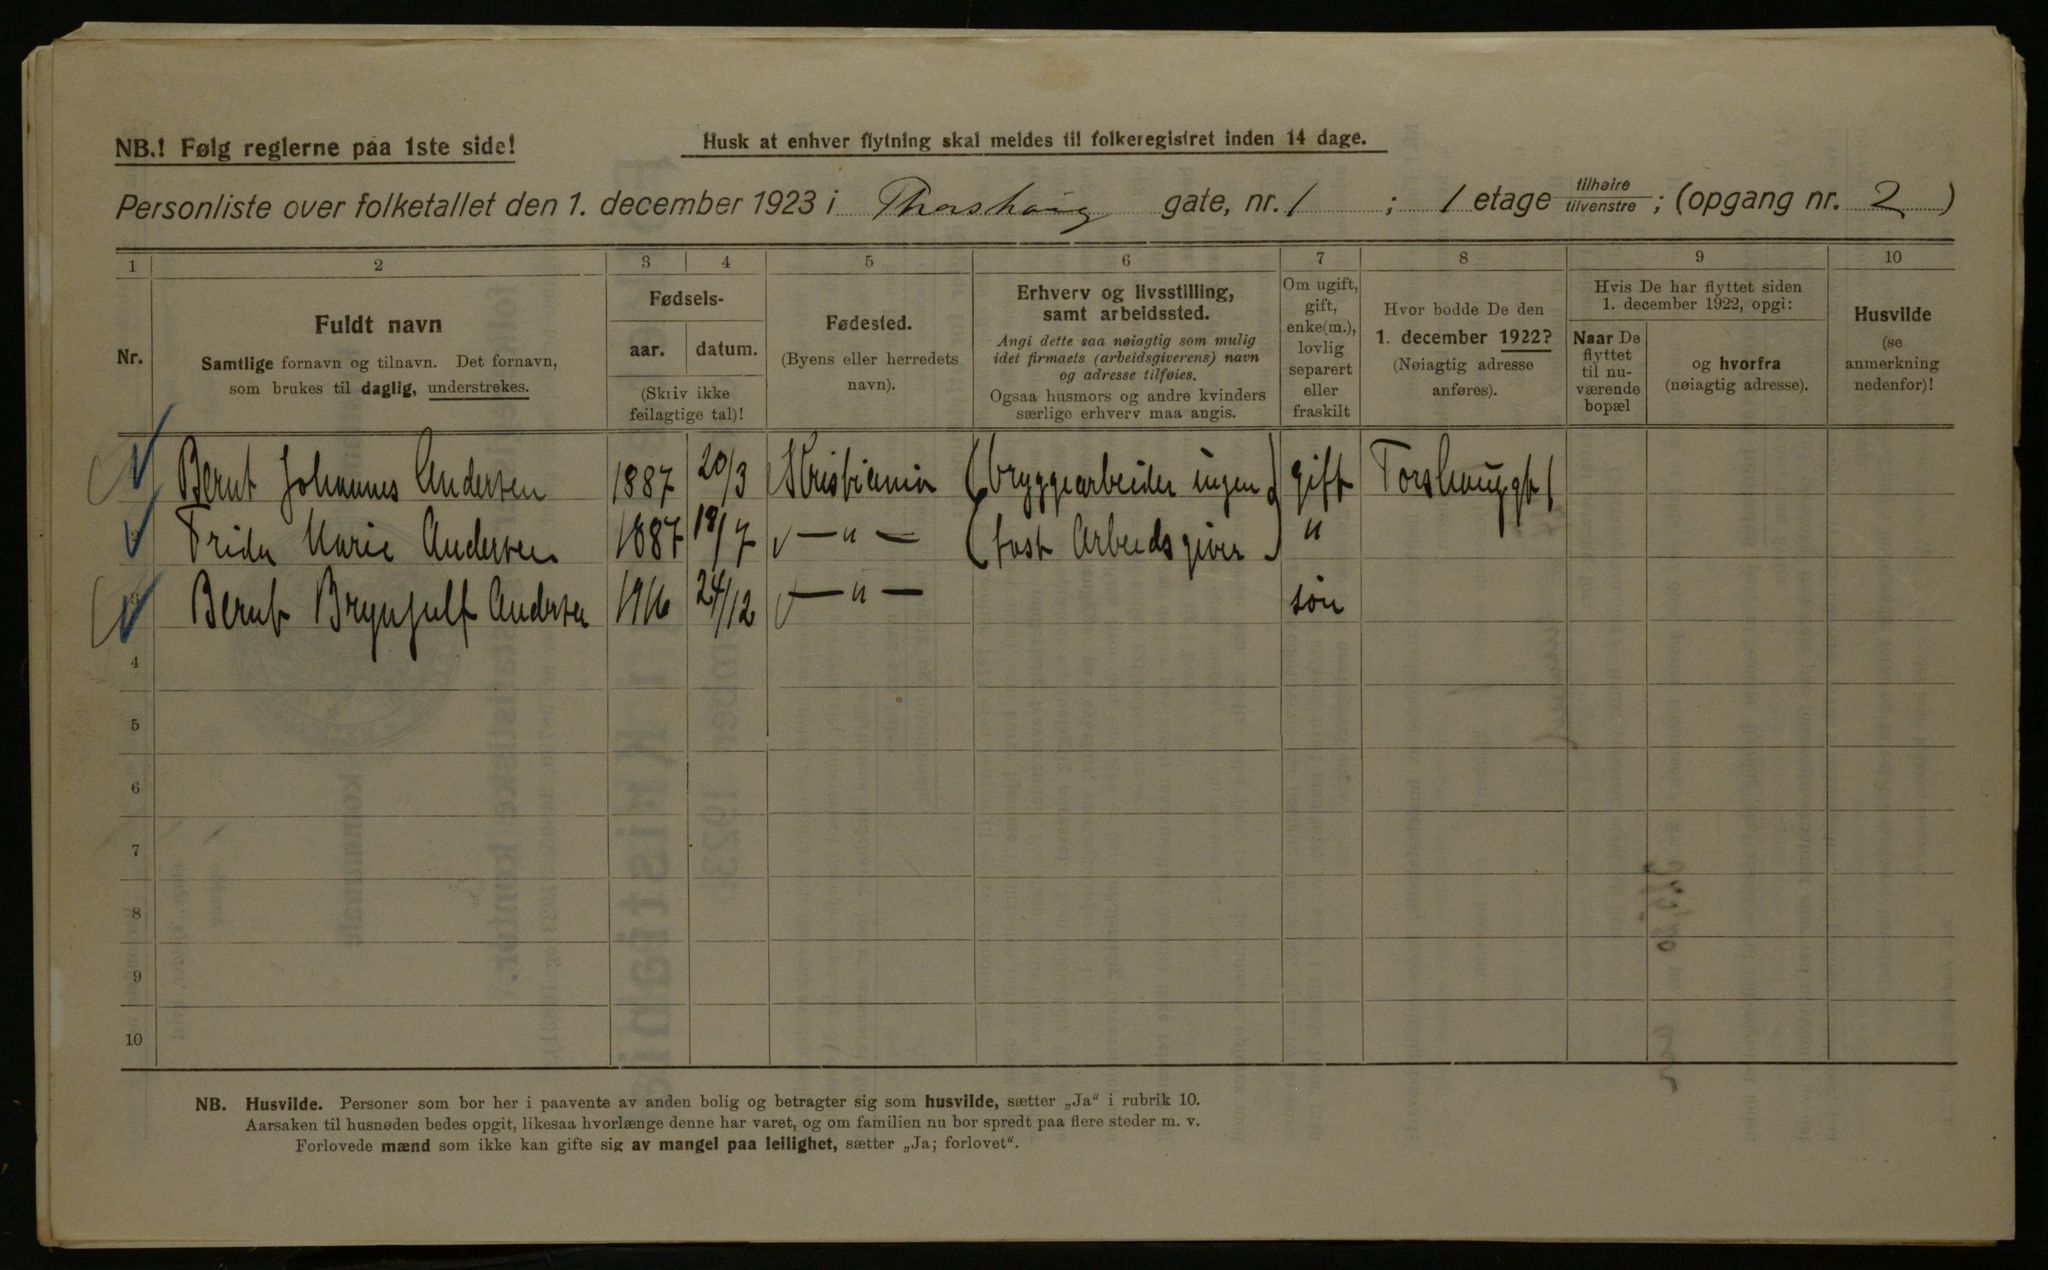 NB.! Følg reglerne paa 1ste side!
Husk at enhver flytning skal meldes til folkeregistret inden 14 dage.
Personliste over folketallet den 1. december 1923 i Thorshaug gate, nr. 1 ; 1 etage tilhøire tilvenstre ; (opgang nr. 2 )
1 2 3 4 5 6 7 8 9 10
Nr.
Fuldt navn
Samtlige fornavn og tilnavn. Det fornavn,
som brukes til daglig, understrekes.
Fødsels-
aar. datum.
(Skriv ikke
feilagtige tal)!
Fødested.
(Byens eller herredets
navn).
Erhverv og livsstilling,
samt arbeidssted.
Angi dette saa nøiagtig som mulig
idet firmaets (arbeidsgiverens) navn
og adresse tilføies.
Ogsaa husmors og andre kvinders
særlige erhverv maa angis.
Om ugift,
gift,
enke(m.),
lovlig
separert
eller
fraskilt
Hvor bodde De den
1. december 1922?
(Nøiagtig adresse
anføres).
Hvis De har flyttet siden
1. december 1922, opgi:
Naar De
flyttet
til nu-
værende
bopæl
og hvorfra
(nøiagtig adresse).
Husvilde
(se
anmerkning
nedenfor)!
Bernt Johannes Andersen 1887 20/3 Kristiania (bryggearbeider ingen) gift Torshauggt 1
Frida Marie Andersen 1887 18/7 — " — (fast Arbeidsgiver) "
Bernt Brynjulf Andersen 1916 24/12 — " — søn
4
5
6
7
8
9
10
NB. Husvilde. Personer som bor her i paavente av anden bolig og betragter sig som husvilde, sætter „Ja“ i rubrik 10.
Aarsaken til husnøden bedes opgit, likesaa hvorlænge denne har varet, og om familien nu bor spredt paa flere steder m. v.
Forlovede mænd som ikke kan gifte sig av mangel paa leilighet, sætter „Ja; forlovet“.